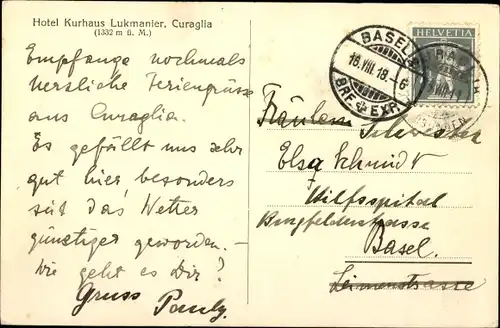 Hotel Kurhaus Lukmanier, Curaglia
(1332 m ü. M.)
Empfange nochmals
herzliche Feriengrüsse
aus Curaglia.
Es gefällt uns sehr
gut hier, besonders
seit das Wetter
günstiger geworden. –
Wie geht es Dir?
Gruss Pauly.
HELVETIA
BASEL
16.VIII.18.–6
BRF. EXP.
Fräulein Schwester
Elsa Schmidt
Hilfsspital
Burgfelderstrasse
Basel.
Leimenstrasse